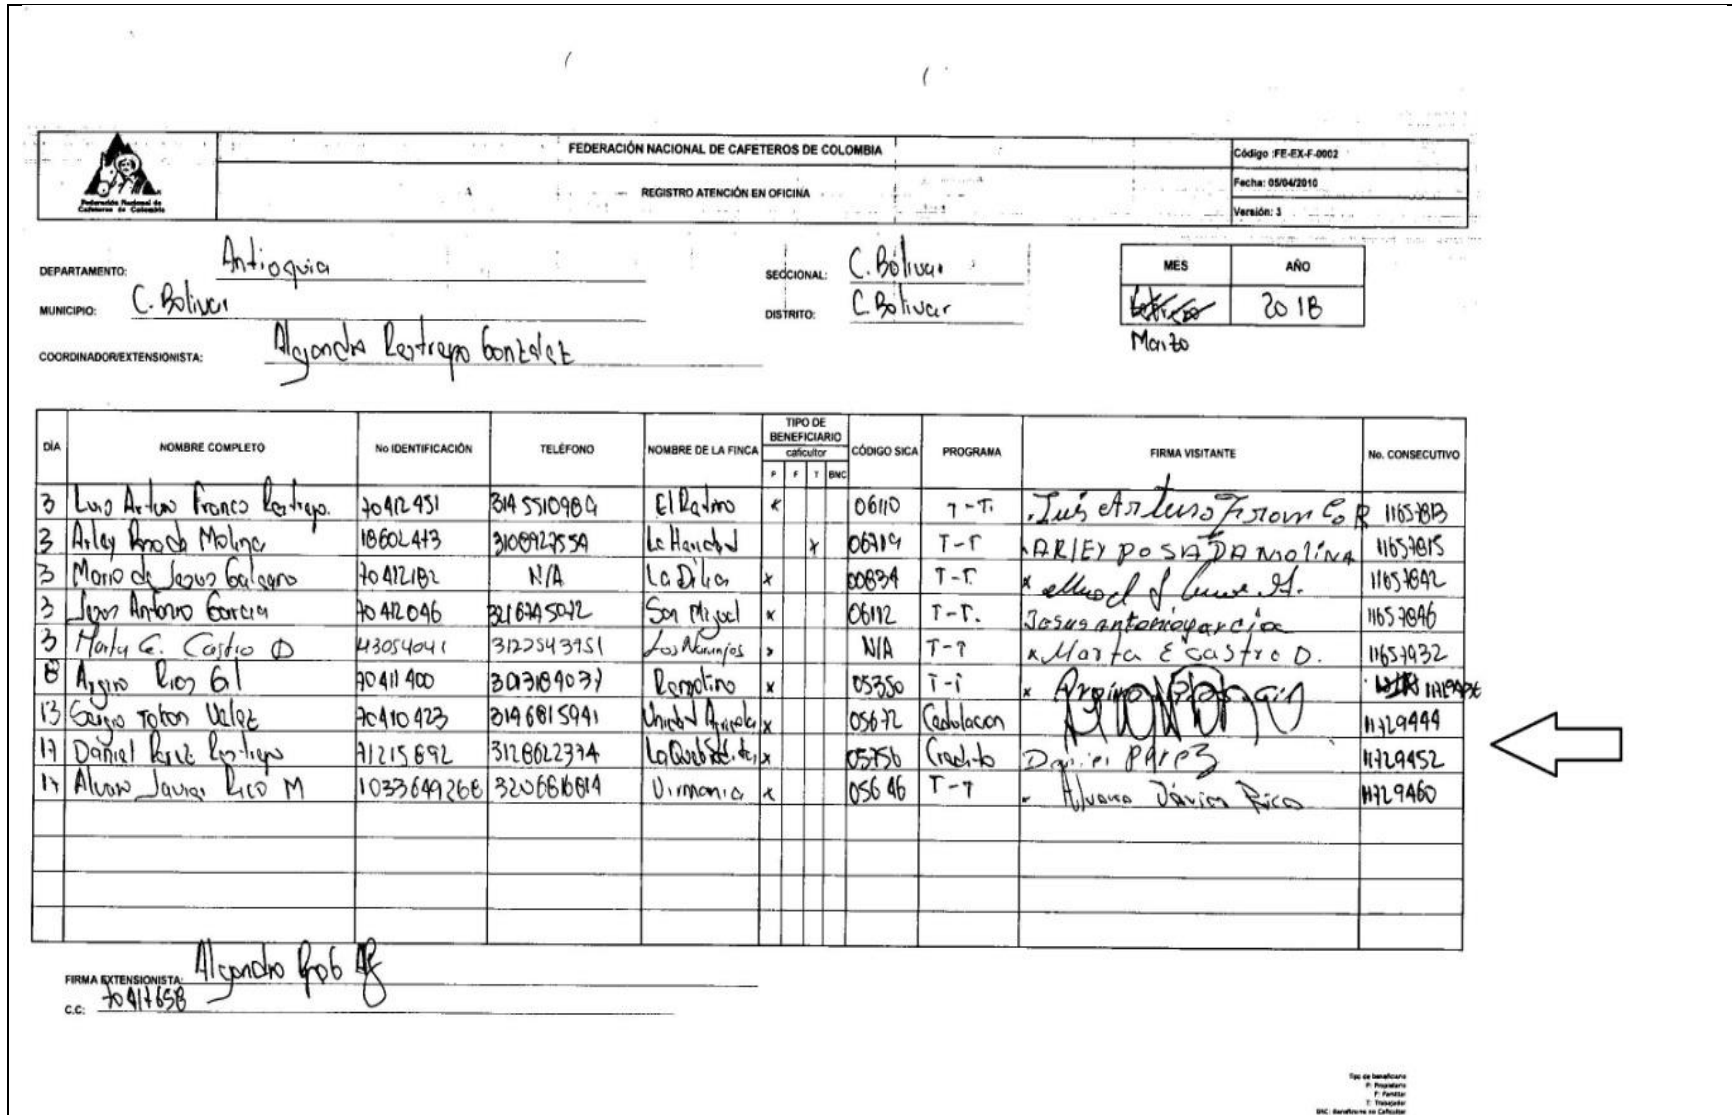 Federación Nacional de
Cafeteros de Colombia
FEDERACIÓN NACIONAL DE CAFETEROS DE COLOMBIA
REGISTRO ATENCIÓN EN OFICINA
Código :FE-EX-F-0002
Fecha: 05/04/2010
Versión: 3
DEPARTAMENTO: Antioquia SECCIONAL: C. Bólivar MES AÑO
MUNICIPIO: C. Bolivar DISTRITO: C. Bolivar 2018
Marzo
COORDINADOR/EXTENSIONISTA: Alejandro Restrepo González
DÍA NOMBRE COMPLETO No IDENTIFICACIÓN TELÉFONO NOMBRE DE LA FINCA TIPO DE BENEFICIARIO caficultor P F T BNC CÓDIGO SICA PROGRAMA FIRMA VISITANTE No. CONSECUTIVO
3 Luis Arturo Franco Restrepo. 70412451 3145510989 El Retiro x 06110 T-T. Luis Arturo Franco R 11657813
3 Arley Posada Molina 18602473 3108927554 x 06719 T-T ARLEY POSADA MOLINA 11657815
3 Mario de Jesus Galeano 70412182 N/A La Dilia x 00834 T-T 11657842
3 Jesus Antonio Garcia 70412046 3216745072 San Miguel x 06112 T-T. Jesus antonio garcia 11657846
3 Marta E. Castro D 43054041 3122543951 Los Naranjos N/A T-T x Marta E castro D. 11657932
8 Argiro Rios Gil 70411400 3013184037 x 05350 T-T x Argiro
13 Sergio Tobon Velez 70410423 3146815941 Unidad Agricola x 05672 Cedulacion 11729444
17 Daniel Perez Restrepo 71215692 3128622374 x 05756 Credito Daniel Pérez 11729452
17 Alvaro Javier Rico M 1033649268 3206616814 Virmania x 05646 T-T Alvaro Javier Rico 11729460
FIRMA EXTENSIONISTA: Alejandro
C.C: 70417658
Tipo de beneficiario
P: Propietario
F: Familiar
T: Trabajador
BNC: Beneficiario no Caficultor